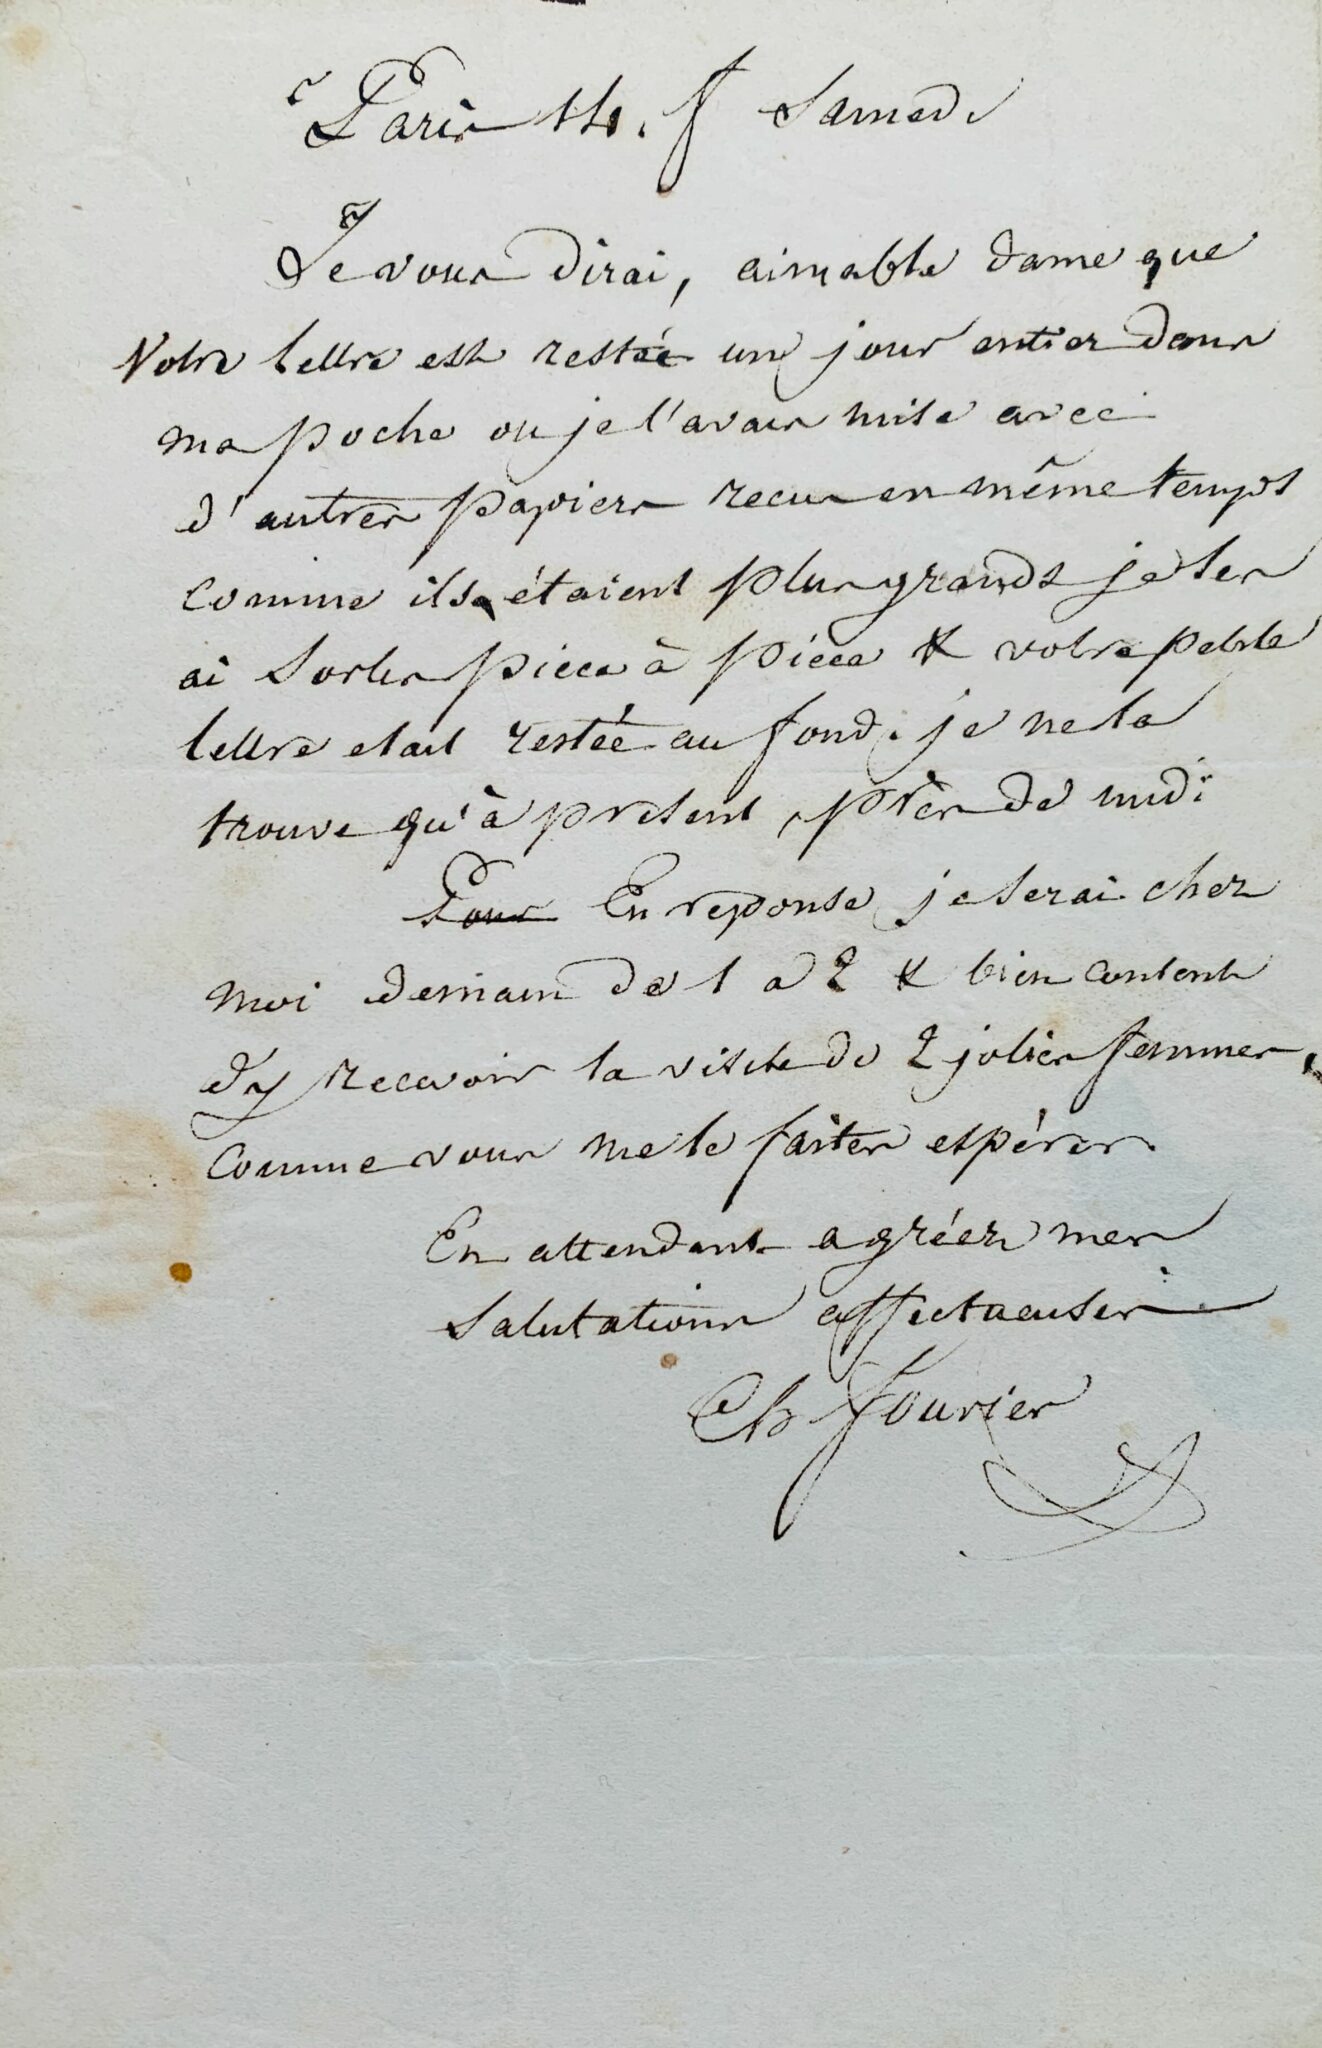 Paris 14. f Samedi
Je vous dirai, aimable dame que
Votre lettre est restée un jour entier dans
ma poche ou je l'avais mise avec
d'autres papiers recus en même temps
comme ils étaient plus grands je les
ai sortis pièce à pièce & votre petite
lettre etait restée au fond. je ne la
trouve qu'à présent, près de midi
Pour En reponse je serai chez
moi demain de 1 a 2 & bien content
d'y recevoir la visite de 2 jolies femmes,
comme vous me le faites espérer.
En attendant agréez mes
salutations affectueuses
Ch Fourier